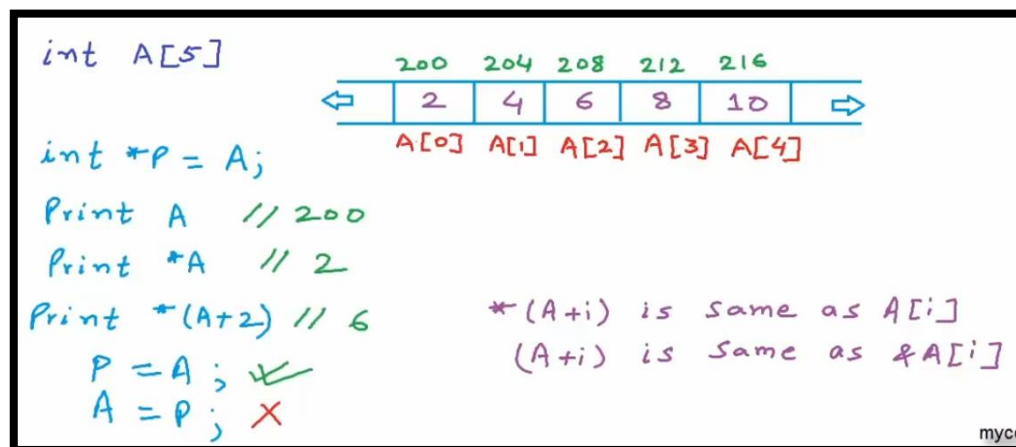 int A[5]
200 204 208 212 216
2 4 6 8 10
A[0] A[1] A[2] A[3] A[4]
int *P = A;
Print A // 200
Print *A // 2
Print *(A+2) // 6
*(A+i) is same as A[i]
P = A;
(A+i) is same as &A[i]
A = P;